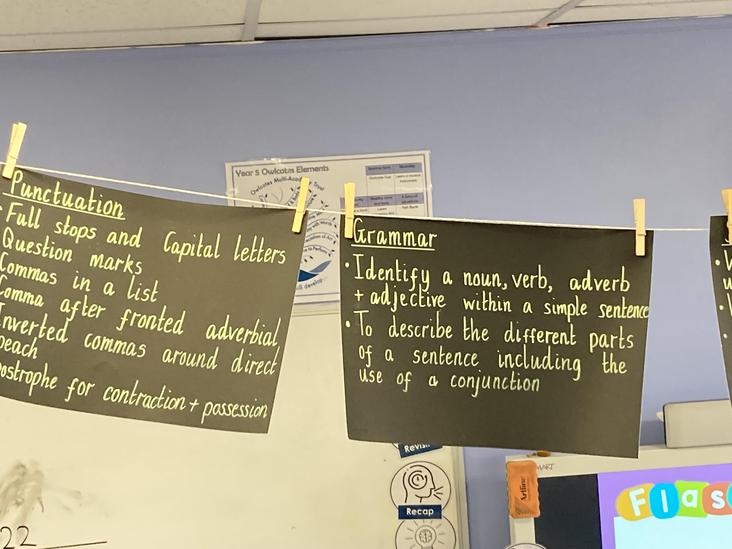 Punctuation
Full stops and Capital letters
Question marks
Commas in a list
Comma after fronted adverbial
Inverted commas around direct
peach
postrophe for contraction + possession
Grammar
• Identify a noun, verb, adverb
+ adjective within a simple sentence
• To describe the different parts
of a sentence including the
use of a conjunction
Year 5 Owlcotes Elements
Owlcotes Multi-Academy Trust
Revisit
Recap
22
SMART
Artline
Flas